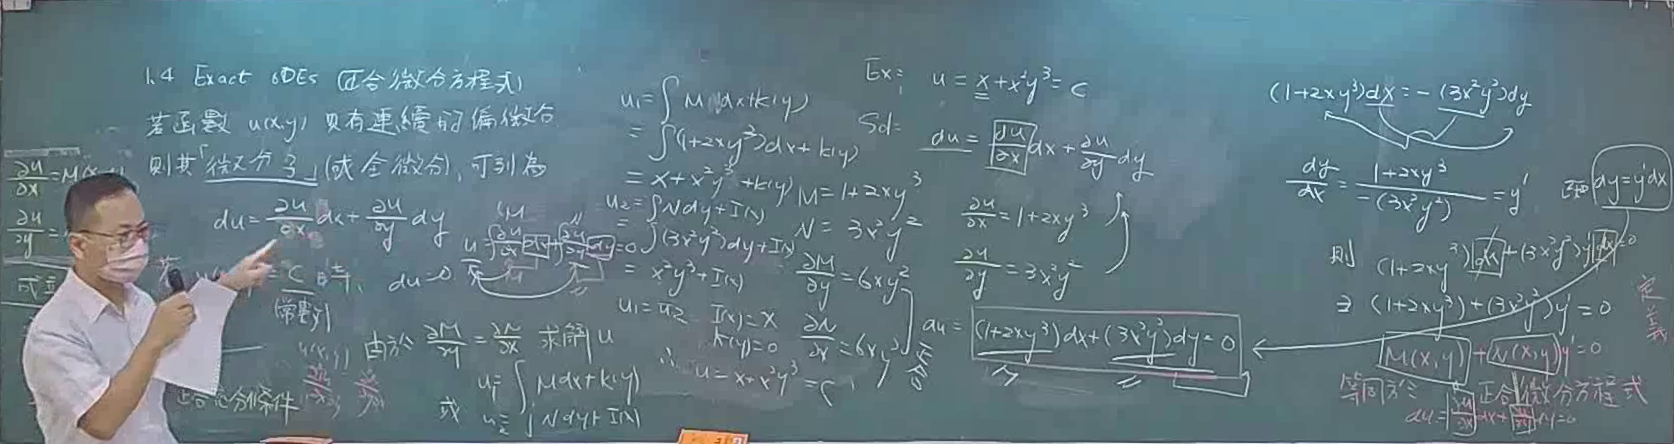 1.4 Exact ODEs (正合微分方程式)
若函數 u(x,y) 具有連續的偏微分
則其「微分子」(或全微分), 可列為
du = ∂u/∂x dx + ∂u/∂y dy
= C 時, du=0
(常數)
由於 ∂M/∂y = ∂N/∂x 求解 u
u₁ = ∫ M dx + k(y)
或 u₂ = ∫ N dy + I(x)
∂u/∂x = M(x
∂u/∂y =
成立
正合 條件
u₁ = ∫ M dx + k(y)
= ∫(1+2xy³)dx + k(y)
= x + x²y³ + k(y)
u₂ = ∫ N dy + I(x)
= ∫(3x²y²)dy + I(x)
= x²y³ + I(x)
u₁ = u₂ I(x) = x
k(y) = 0
∴ u = x + x²y³ = C
u = ∂u/∂x dx + ∂u/∂y dy = 0
M = 1+2xy³
N = 3x²y²
∂M/∂y = 6xy²
∂N/∂x = 6xy²
Ex: u = x + x²y³ = C
Sol: du = ∂u/∂x dx + ∂u/∂y dy
∂u/∂x = 1+2xy³
∂u/∂y = 3x²y²
du = (1+2xy³)dx + (3x²y²)dy = 0
(1+2xy³)dx = -(3x²y²)dy
dy/dx = (1+2xy³)/-(3x²y²) = y'
dy = y'dx
則 (1+2xy³)dx + (3x²y²)y'dx = 0
∃ (1+2xy³) + (3x²y²)y' = 0
M(x,y) + N(x,y)y' = 0
等同於 正合微分方程式
du = ∂u/∂x dx + ∂u/∂y dy = 0
定義